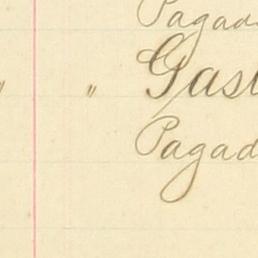 Pagad
" " Gast
Pagad